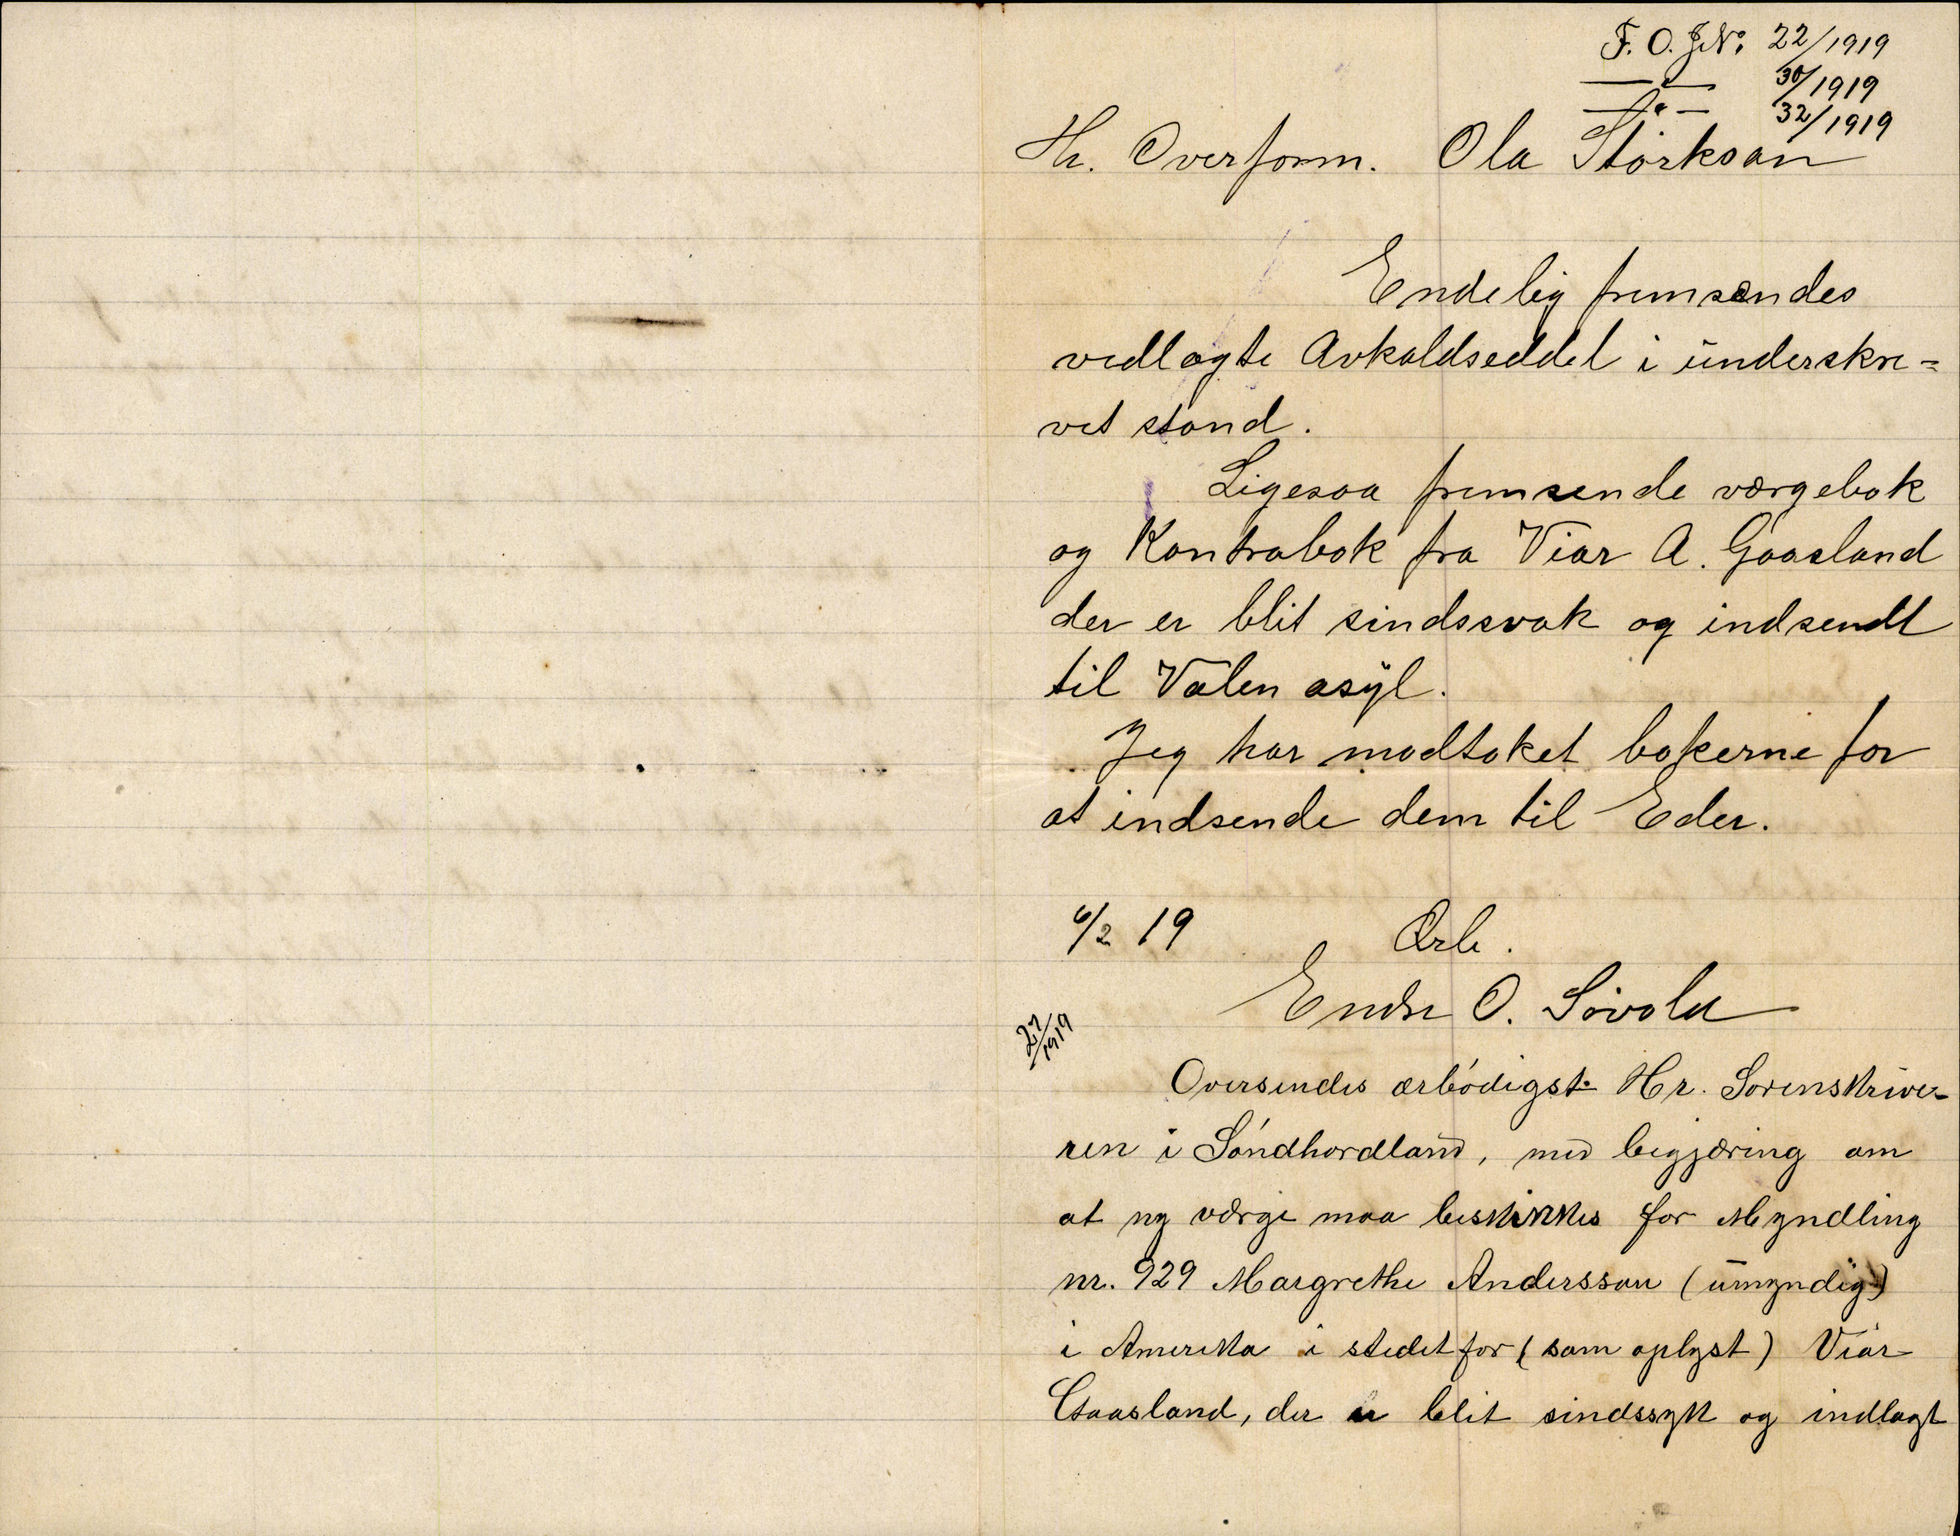 F. O. J.No. 22/1919
—"— 30/1919
—"— 32/1919
Hr. Overform. Ola Størksøn
Endelig fremsendes
vedlagte Avkaldseddel i underskre=
vet stand.
Ligesaa fremsende værgebok
og Kontrabok fra Viar A. Gaasland
der er blit sindssvak og indsendt
til Valen asyl.
Jeg har modtaket bøkerne for
at indsende dem til Eder.
6/2 19 Ærb.
Endre O. Løvold
27/1919
Oversendes ærbødigst Hr. Sorenskrive-
ren i Søndhordland, med begjæring om
at ny værge maa beskikkes for Myndling
nr. 929 Margrethe Anderssøn (umyndig)
i Amerika i stedet for (som oplyst) Viar
Gaasland, der er blit sindssyk og indlagt